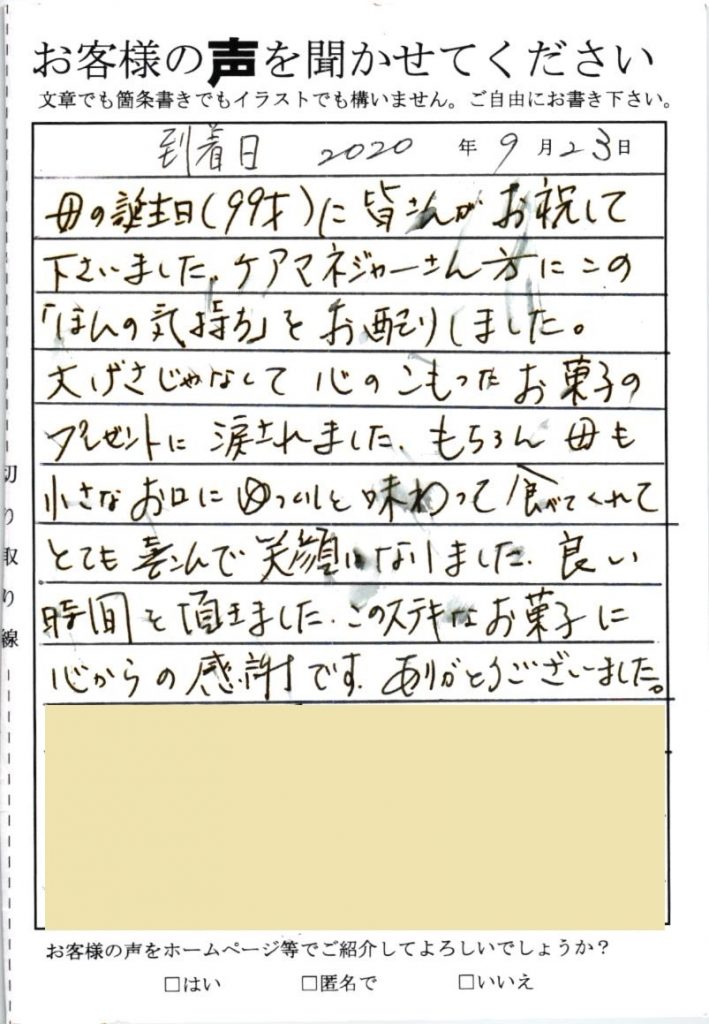 お客様の声を聞かせてください
文章でも箇条書きでもイラストでも構いません。ご自由にお書き下さい。
到着日 2020 年 9 月 23 日
母の誕生日(99才)に皆さんがお祝して
下さいました。ケアマネジャーさん方にこの
「ほんの気持ち」をお配りしました。
大げさじゃなくて心のこもったお菓子の
プレゼントに涙されました。もちろん母も
小さなお口にゆっくりと味わって食べてくれて
とても喜こんで笑顔になりました。良い
時間を頂きました。このステキなお菓子に
心からの感謝です。ありがとうございました。
切り取り線
お客様の声をホームページ等でご紹介してよろしいでしょうか？
□はい □匿名で □いいえ